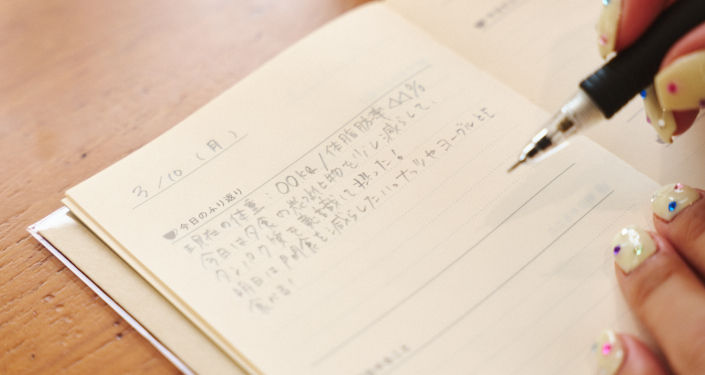 3/10 (月)
今日のふり返り
現在の体重:〇〇kg/体脂肪率△△%
今日は夕食の炭水化物を少し減らして、
タンパク質を意識して摂った!
明日は間食を減らしたい。ナッツやヨーグルトを
食べる!